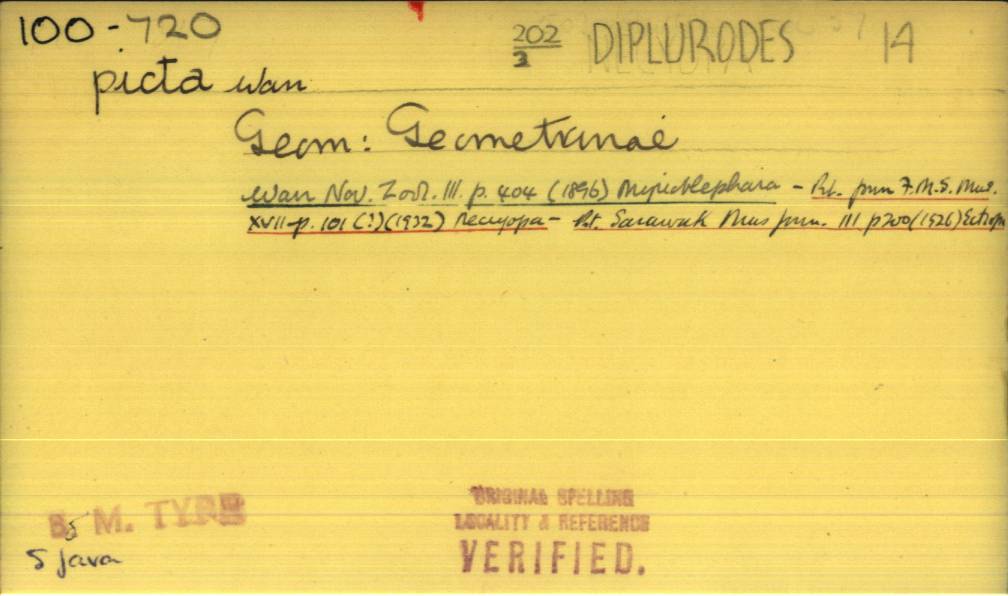 100-720
202/3 DIPLURODES 14
picta Warr
Geom: Geometrinae
Warr Nov. Zool. III. p. 404 (1896) - Pt. Journ F.M.S. Mus.
XVII p. 101 (?) (1932) - Pt. Sarawak Mus Journ. III p200 (1926) Ectrop
B M. TYPE
S Java
ORIGINAL SPELLING
LOCALITY & REFERENCE
VERIFIED.